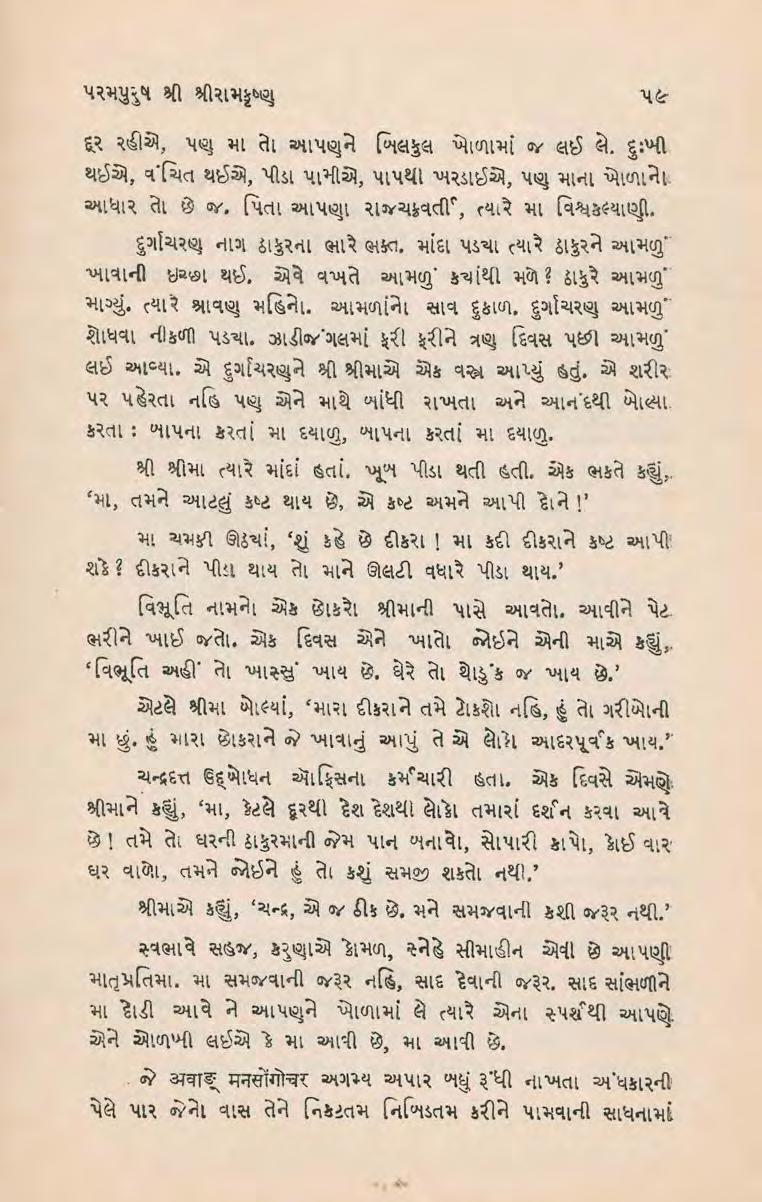 પરમપુરુષ શ્રી શ્રીરામકૃષ્ણ ૫૯
દૂર રહીએ, પણ મા તો આપણને બિલકુલ ખોળામાં જ લઈ લે. દુઃખી
થઈએ, વંચિત થઈએ, પીડા પામીએ, પાપથી ખરડાઈએ, પણ માના ખોળાનો
આધાર તો છે જ. પિતા આપણા રાજચક્રવર્તી, ત્યારે મા વિશ્વકલ્યાણી.
દુર્ગાચરણ નાગ ઠાકુરના ભારે ભક્ત. માંદા પડયા ત્યારે ઠાકુરને આમળું
ખાવાની ઇચ્છા થઈ. એવે વખતે આમળું કયાંથી મળે? ઠાકુરે આમળું
માગ્યું. ત્યારે શ્રાવણ મહિનો. આમળાંનો સાવ દુકાળ. દુર્ગાચરણ આમળું
શોધવા નીકળી પડયા. ઝાડીજંગલમાં ફરી ફરીને ત્રણ દિવસ પછી આમળું
લઈ આવ્યા. એ દુર્ગાચરણને શ્રી શ્રીમાએ એક વસ્ત્ર આપ્યું હતું. એ શરીર
પર પહેરતા નહિ પણ એને માથે બાંધી રાખતા અને આનંદથી બોલ્યા
કરતા : બાપના કરતાં મા દયાળુ, બાપના કરતાં મા દયાળુ.
શ્રી શ્રીમા ત્યારે માંદાં હતાં. ખૂબ પીડા થતી હતી. એક ભકતે કહ્યું,
‘મા, તમને આટલું કષ્ટ થાય છે, એ કષ્ટ અમને આપી દોને!’
મા ચમકી ઊઠયાં, ‘શું કહે છે દીકરા! મા કદી દીકરાને કષ્ટ આપી
શકે? દીકરાને પીડા થાય તો માને ઊલટી વધારે પીડા થાય.’
વિભૂતિ નામનો એક છોકરો શ્રીમાની પાસે આવતો. આવીને પેટ
ભરીને ખાઈ જતો. એક દિવસ એને ખાતો જોઇને એની માએ કહ્યું,
‘વિભૂતિ અહીં તો ખાસ્સું ખાય છે. ઘેરે તો થોડુંક જ ખાય છે.’
એટલે શ્રીમા બોલ્યાં, ‘મારા દીકરાને તમે ટોકશો નહિ, હું તો ગરીબોની
મા છું. હું મારા છોકરાને જે ખાવાનું આપું તે એ લોકો આદરપૂર્વક ખાય.’
ચન્દ્રદત્ત ઉદ્‌બોધન ઑફિસના કર્મચારી હતા. એક દિવસે એમણે
શ્રીમાને કહ્યું, ‘મા, કેટલે દૂરથી દેશ દેશથી લોકો તમારાં દર્શન કરવા આવે
છે! તમે તો ઘરની ઠાકુરમાની જેમ પાન બનાવો, સોપારી કાપો, કોઈ વાર
ઘર વાળો, તમને જોઇને હું તો કશું સમજી શકતો નથી.’
શ્રીમાએ કહ્યું, ‘ચન્દ્ર, એ જ ઠીક છે. મને સમજવાની કશી જરૂર નથી.’
સ્વભાવે સહજ, કરુણાએ કોમળ, સ્નેહે સીમાહીન એવી છે આપણી
માતૃપ્રતિમા. મા સમજવાની જરૂર નહિ, સાદ દેવાની જરૂર. સાદ સાંભળીને
મા દોડી આવે ને આપણને ખોળામાં લે ત્યારે એના સ્પર્શથી આપણે
એને ઓળખી લઈએ કે મા આવી છે, મા આવી છે.
જે अवाङ् मनसोंगोचर અગમ્ય અપાર બધું રૂંધી નાખતા અંધકારની
પેલે પાર જેનો વાસ તેને નિકટતમ નિબિડતમ કરીને પામવાની સાધનામાં